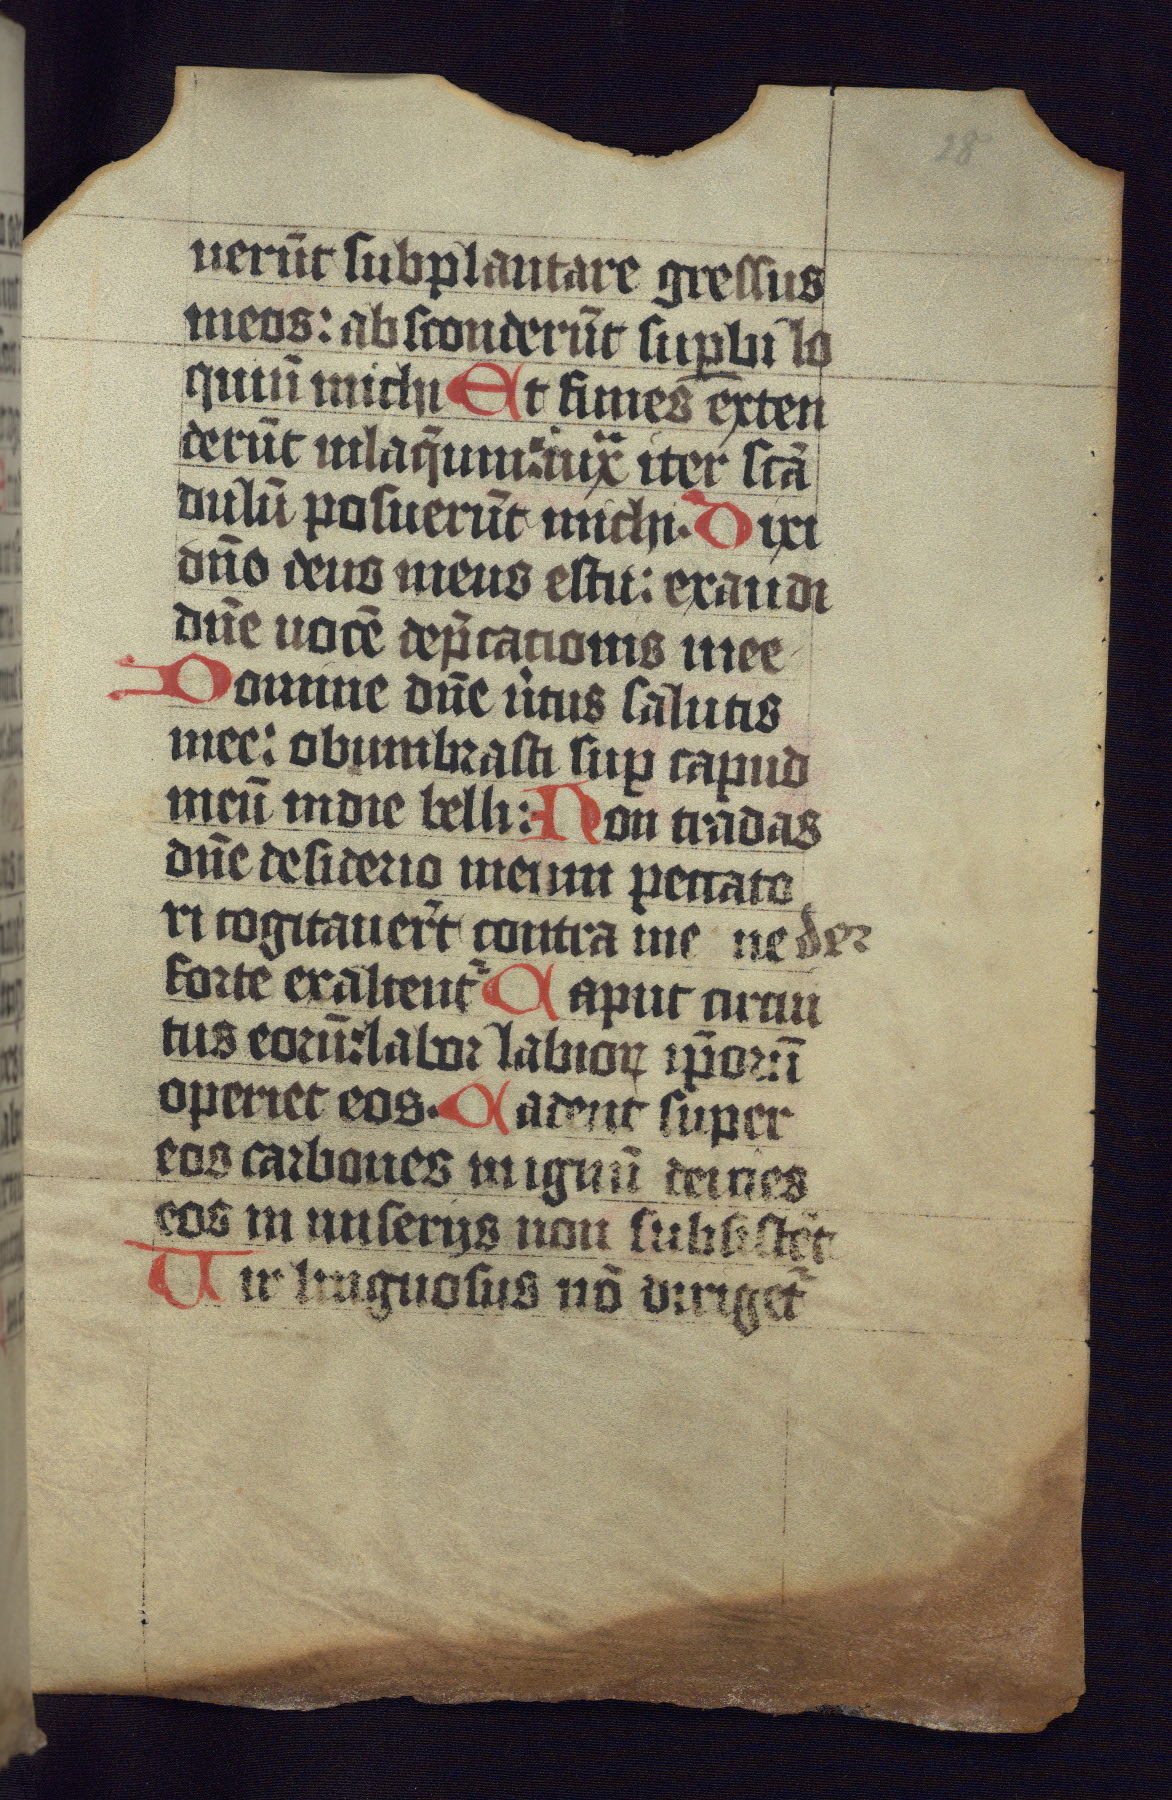 28
uerūt subplantare gressus
meos: absconderūt suꝑbi lo
quiū michi Et funes exten
derūt inlaq̄um: iux̄ iter scā
dulū posuerūt michi. Dixi
dn̄o deus meus estu: exaudi
dn̄e uocē dep̄cationis mee
Domine dn̄e uirtus salutis
mee: obumbrasti suꝑ capud
meū indie belli: Non tradas
dn̄e desiderio meum peccato
ri cogitauer̄t contra me ne der
forte exaltent᷑ Caput circui
tus eorū: labor labioꝝ ip̄orū
operiet eos. Cadent super
eos carbones in ignū deicies
eos in miserijs non subsistēt
Vir linguosus nō diriget᷑